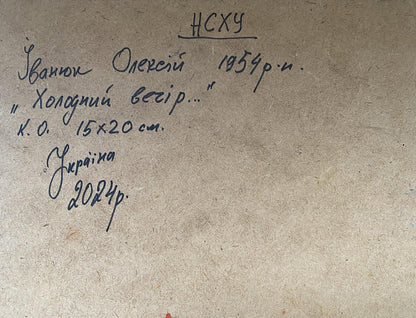 НСХУ
Іванюк Олексій 1954р.н.
„Холодний вечір..."
к.о. 15x20см.
Україна
2024р.